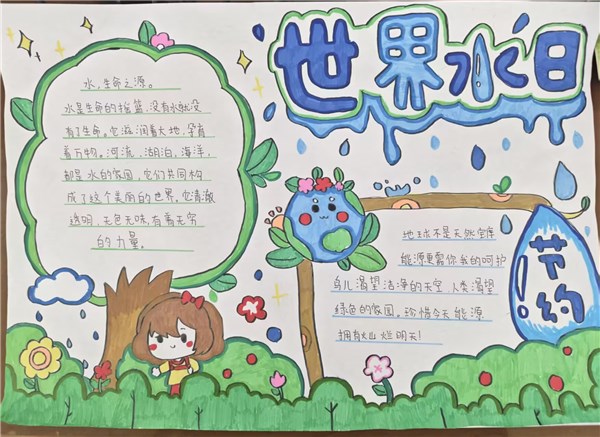 世界水日
水,生命之源。
水是生命的摇篮,没有水就没
有了生命。它滋润着大地,孕育
着万物。河流,湖泊,海洋,
都是水的家园,它们共同构
成了这个美丽的世界。它清澈
透明,无色无味,有着无穷
的力量。
地球不是天然宝库
能源更需你我的呵护
鸟儿渴望洁净的天空,人类渴望
绿色的家园。珍惜今天能源
拥有灿烂明天!
节约!